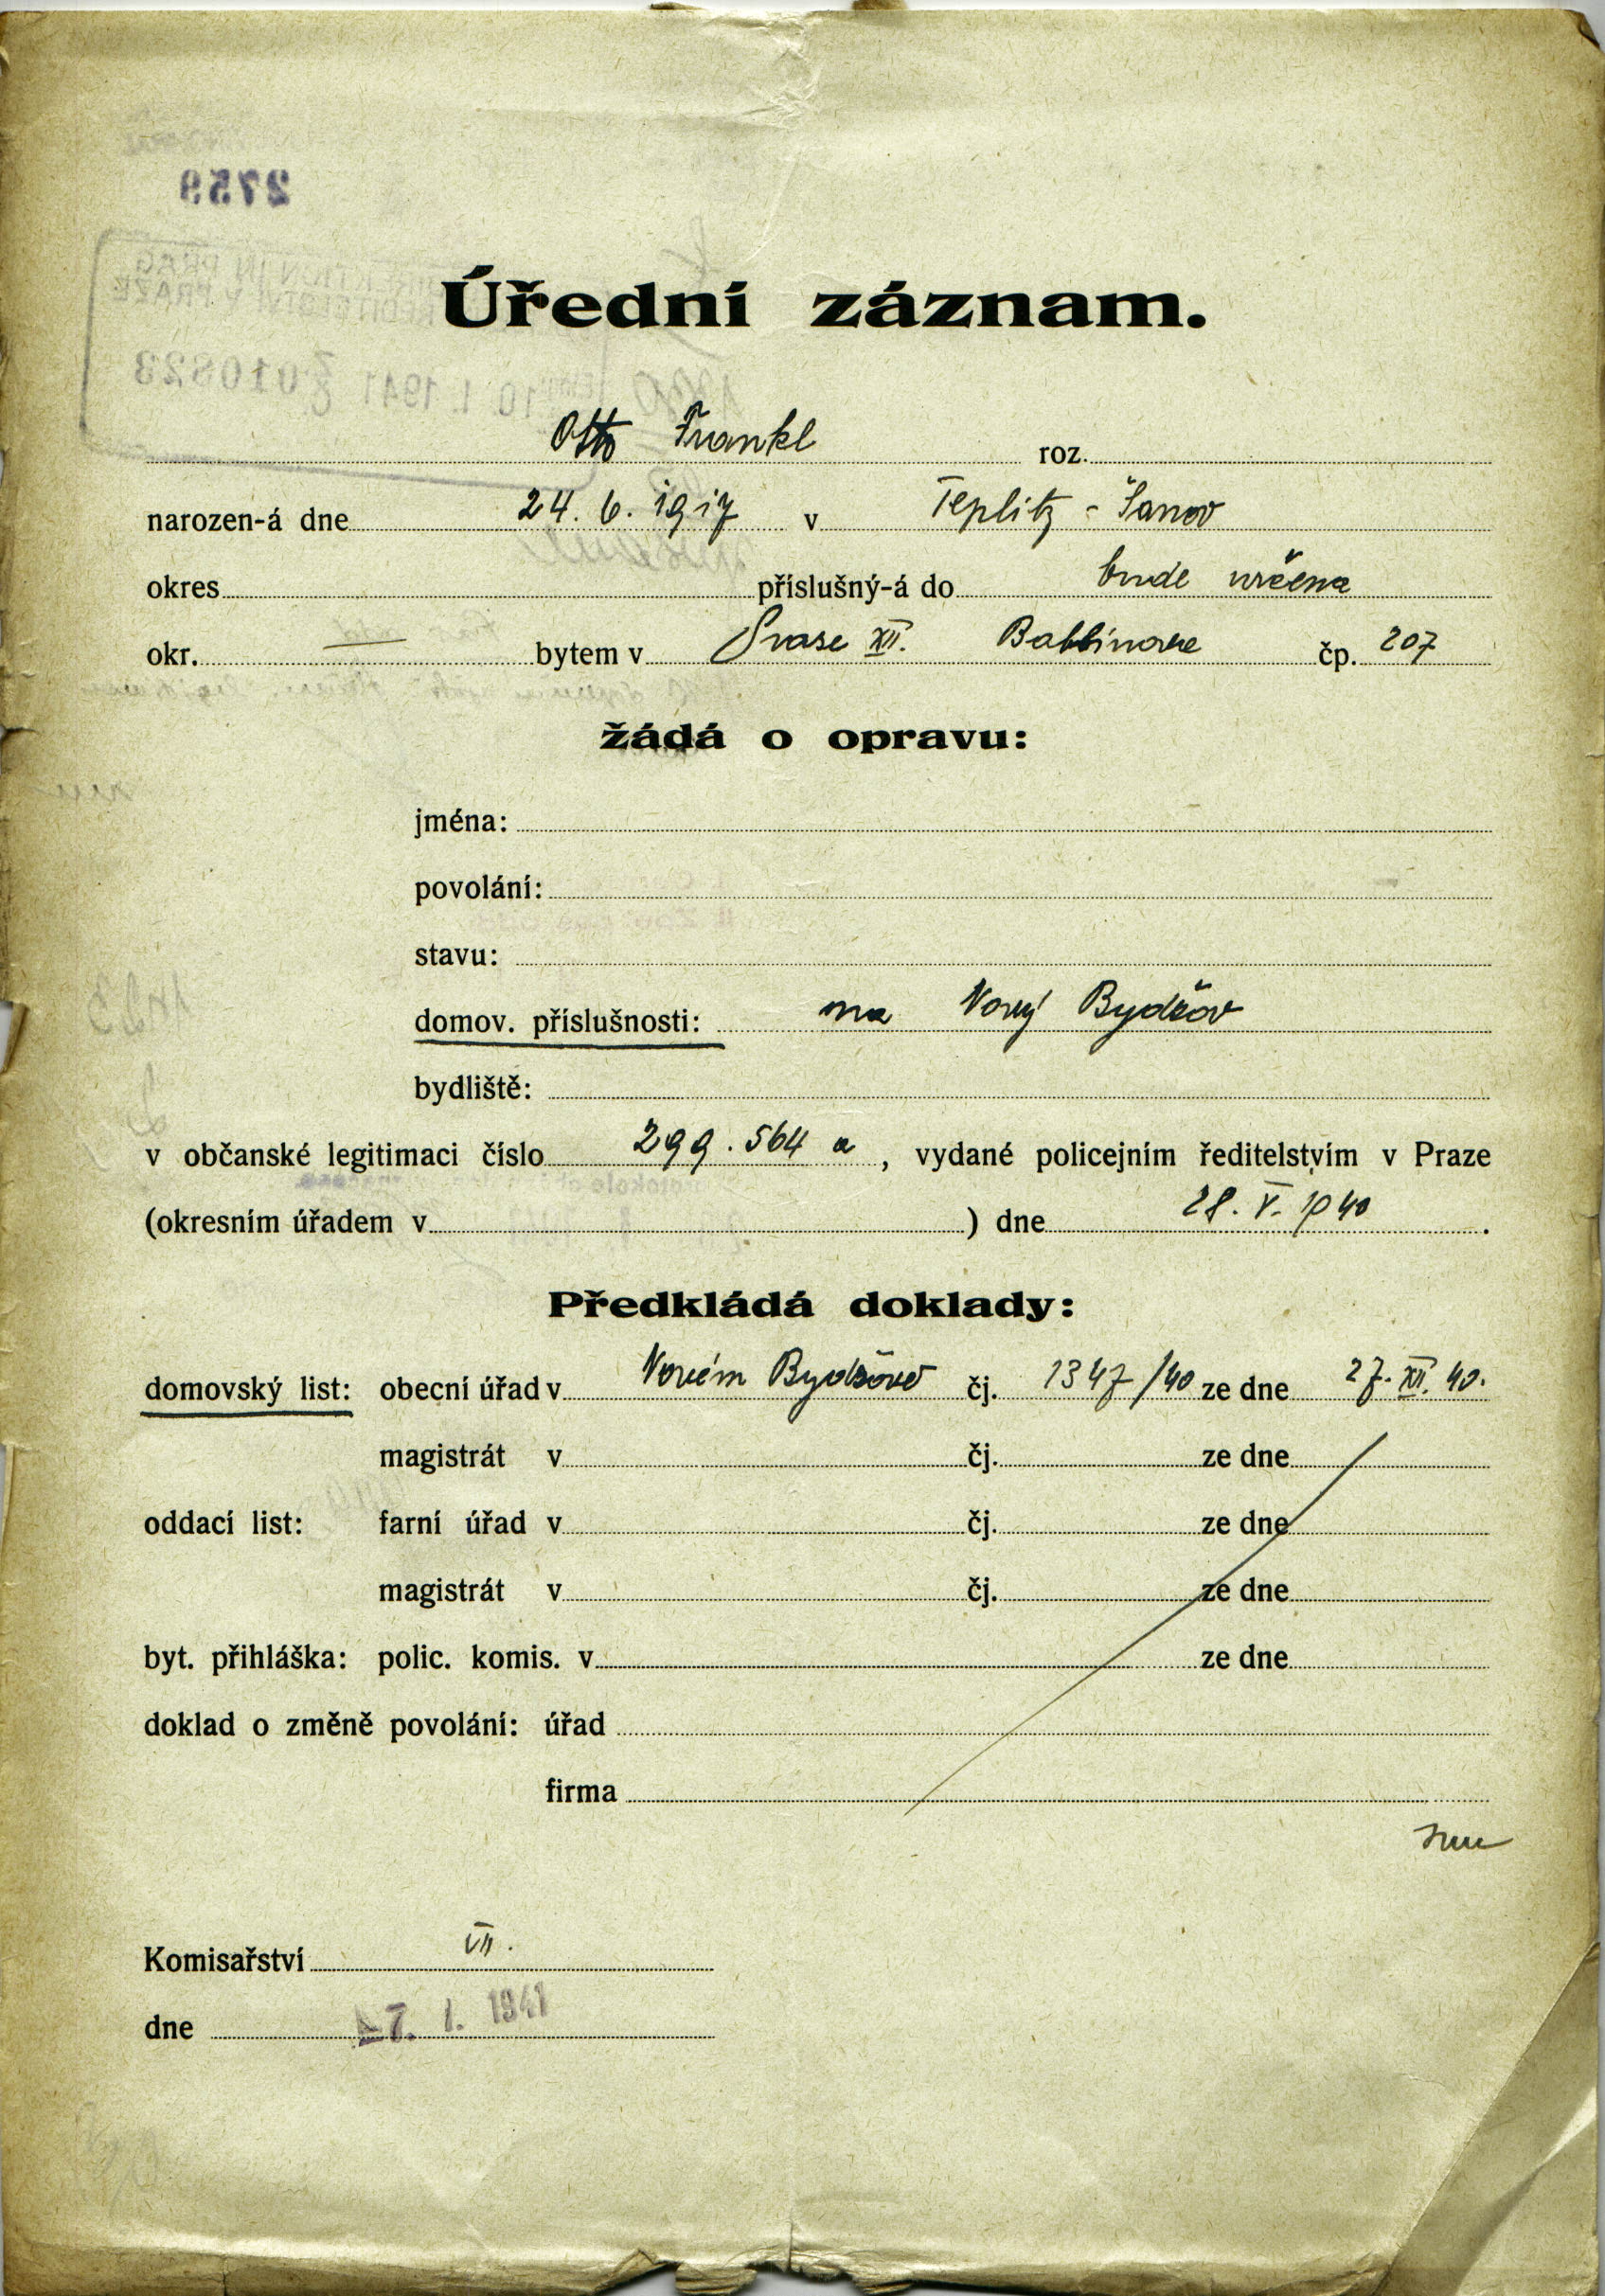 2759
Úřední záznam.
10. I. 1941 010823
Otto Frankl roz.
narozen-á dne 24. 6. 1917 v Teplitz - Šanov
okres příslušný-á do bude určena
okr. — bytem v Praze XII. Balbínova čp. 207
žádá o opravu:
jména:
povolání:
stavu:
domov. příslušnosti: na Nový Bydžov
bydliště:
v občanské legitimaci číslo 299.564 a, vydané policejním ředitelstvím v Praze
(okresním úřadem v ) dne 28. V. 1940.
Předkládá doklady:
domovský list: obecní úřad v Novém Bydžově čj. 1347/40 ze dne 27. XII. 40.
magistrát v čj. ze dne
oddací list: farní úřad v čj. ze dne
magistrát v čj. ze dne
byt. přihláška: polic. komis. v ze dne
doklad o změně povolání: úřad
firma
Komisařství VII.
dne 7. I. 1941